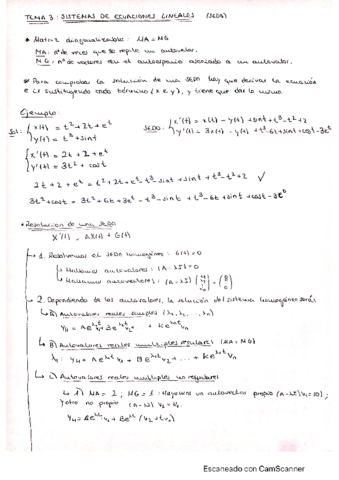 TEMA 3: SISTEMAS DE ECUACIONES LINEALES (SEDO)
* Matriz diagonalizable: MA=MG
MA: nº de veces que se repite un autovalor.
MG: nº de vectores en el autoespacio asociado a un autovalor.
* Para comprobar la solución de una SEDO hay que derivar la ecuación
e ir sustituyendo cada término (x e y), y tiene que dar lo mismo.
Ejemplo:
Sol: x(t) = t²+2t+eᵗ
y(t) = t³+sint
SEDO: x'(t) = x(t) - y(t) + sint + t³ - t² + 2
y'(t) = 3x(t) - y(t) + t³ - 6t + sint + cost - 3eᵗ
x'(t) = 2t + 2 + eᵗ
y'(t) = 3t² + cost
2t + 2 + eᵗ = t² + 2t + eᵗ - t³ - sint + sint + t³ - t² + 2 ✓
3t² + cost = 3t² + 6t + 3eᵗ - t³ - sint + t³ - 6t + sint + cost - 3eᵗ
* Resolución de una SEDO
X'(t) = AX(t) + G(t)
1. Resolvemos el SEDO homogéneo: G(t)=0
Hallamos autovalores: (A-λI)=0
Hallamos autovectores: (A-λI)
2. Dependiendo de los autovalores, la solución del sistema homogéneo será:
A) Autovalores reales simples (λ₁, λ₂, ..., λn)
B) Autovalores reales múltiples regulares (MA=MG)
C) Autovalores reales múltiples no regulares
1) MA = 2; MG = 1: Hay un autovector propio (A-λI)v₁ = 0;
y otro no propio (A-λI) v₂ = v₁.
Escaneado con CamScanner